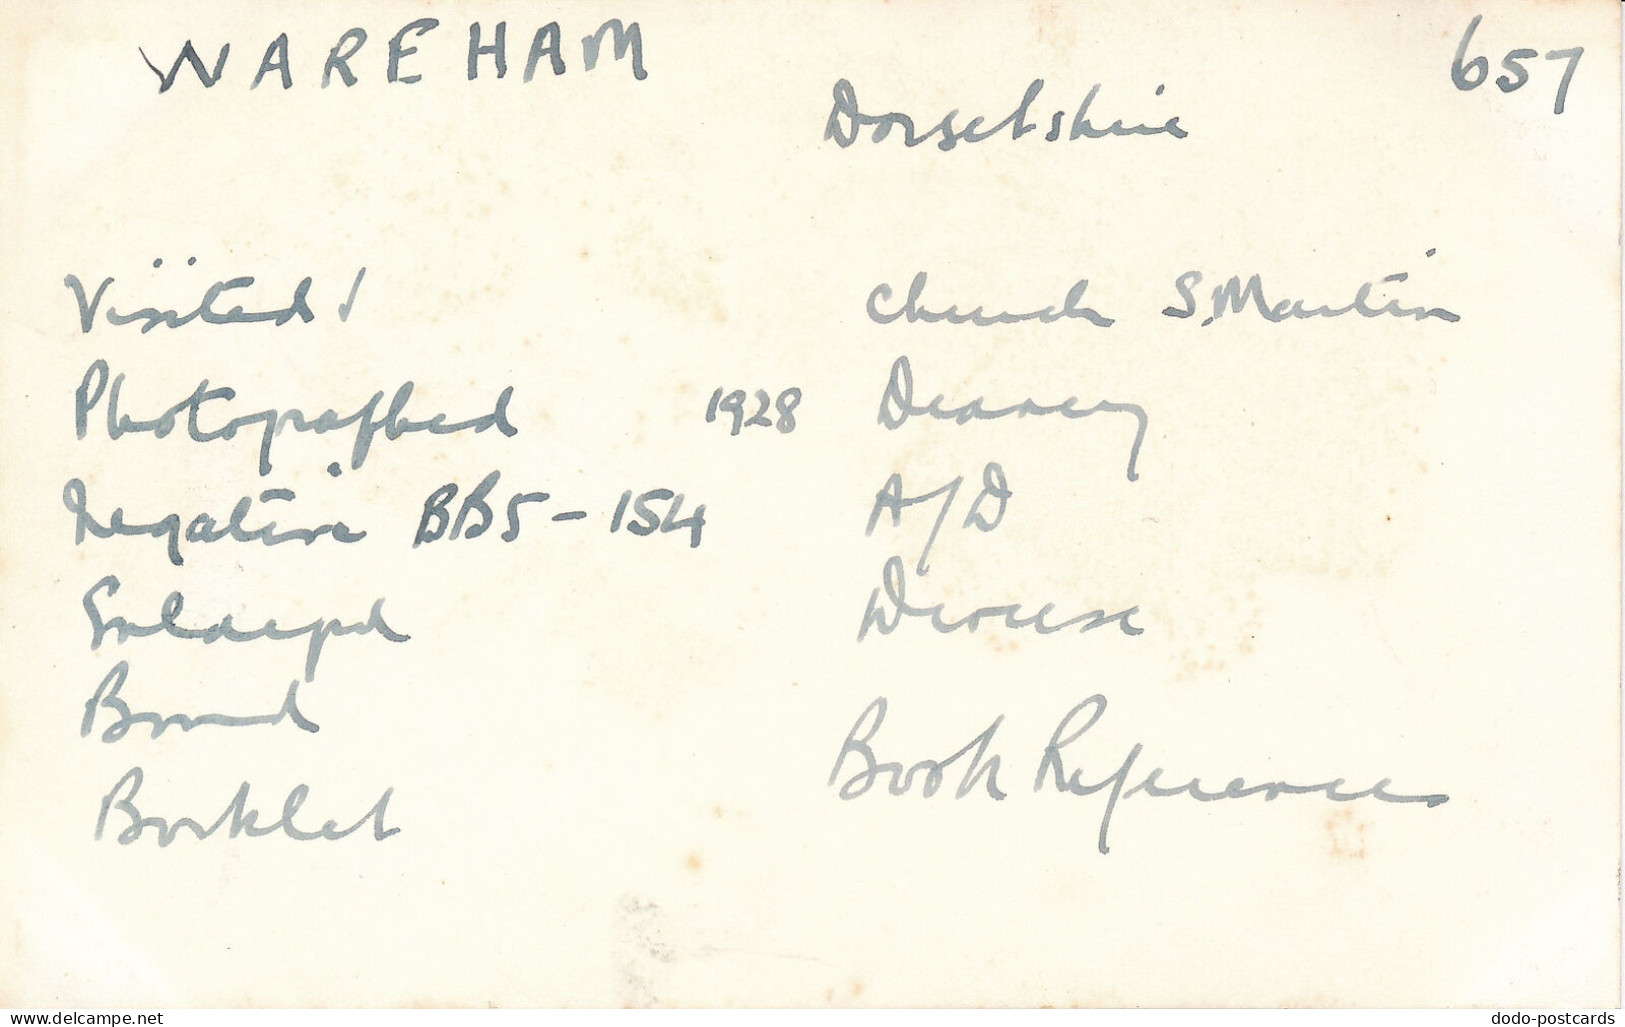 WAREHAM
657
Dorsetshire
Visited ✓
Church S. Martin
Photographed 1928
Deanery
Negative BB5-154
A/D
Enlarged
Diocese
Bound
Book References
Booklet
www.delcampe.net
dodo-postcards